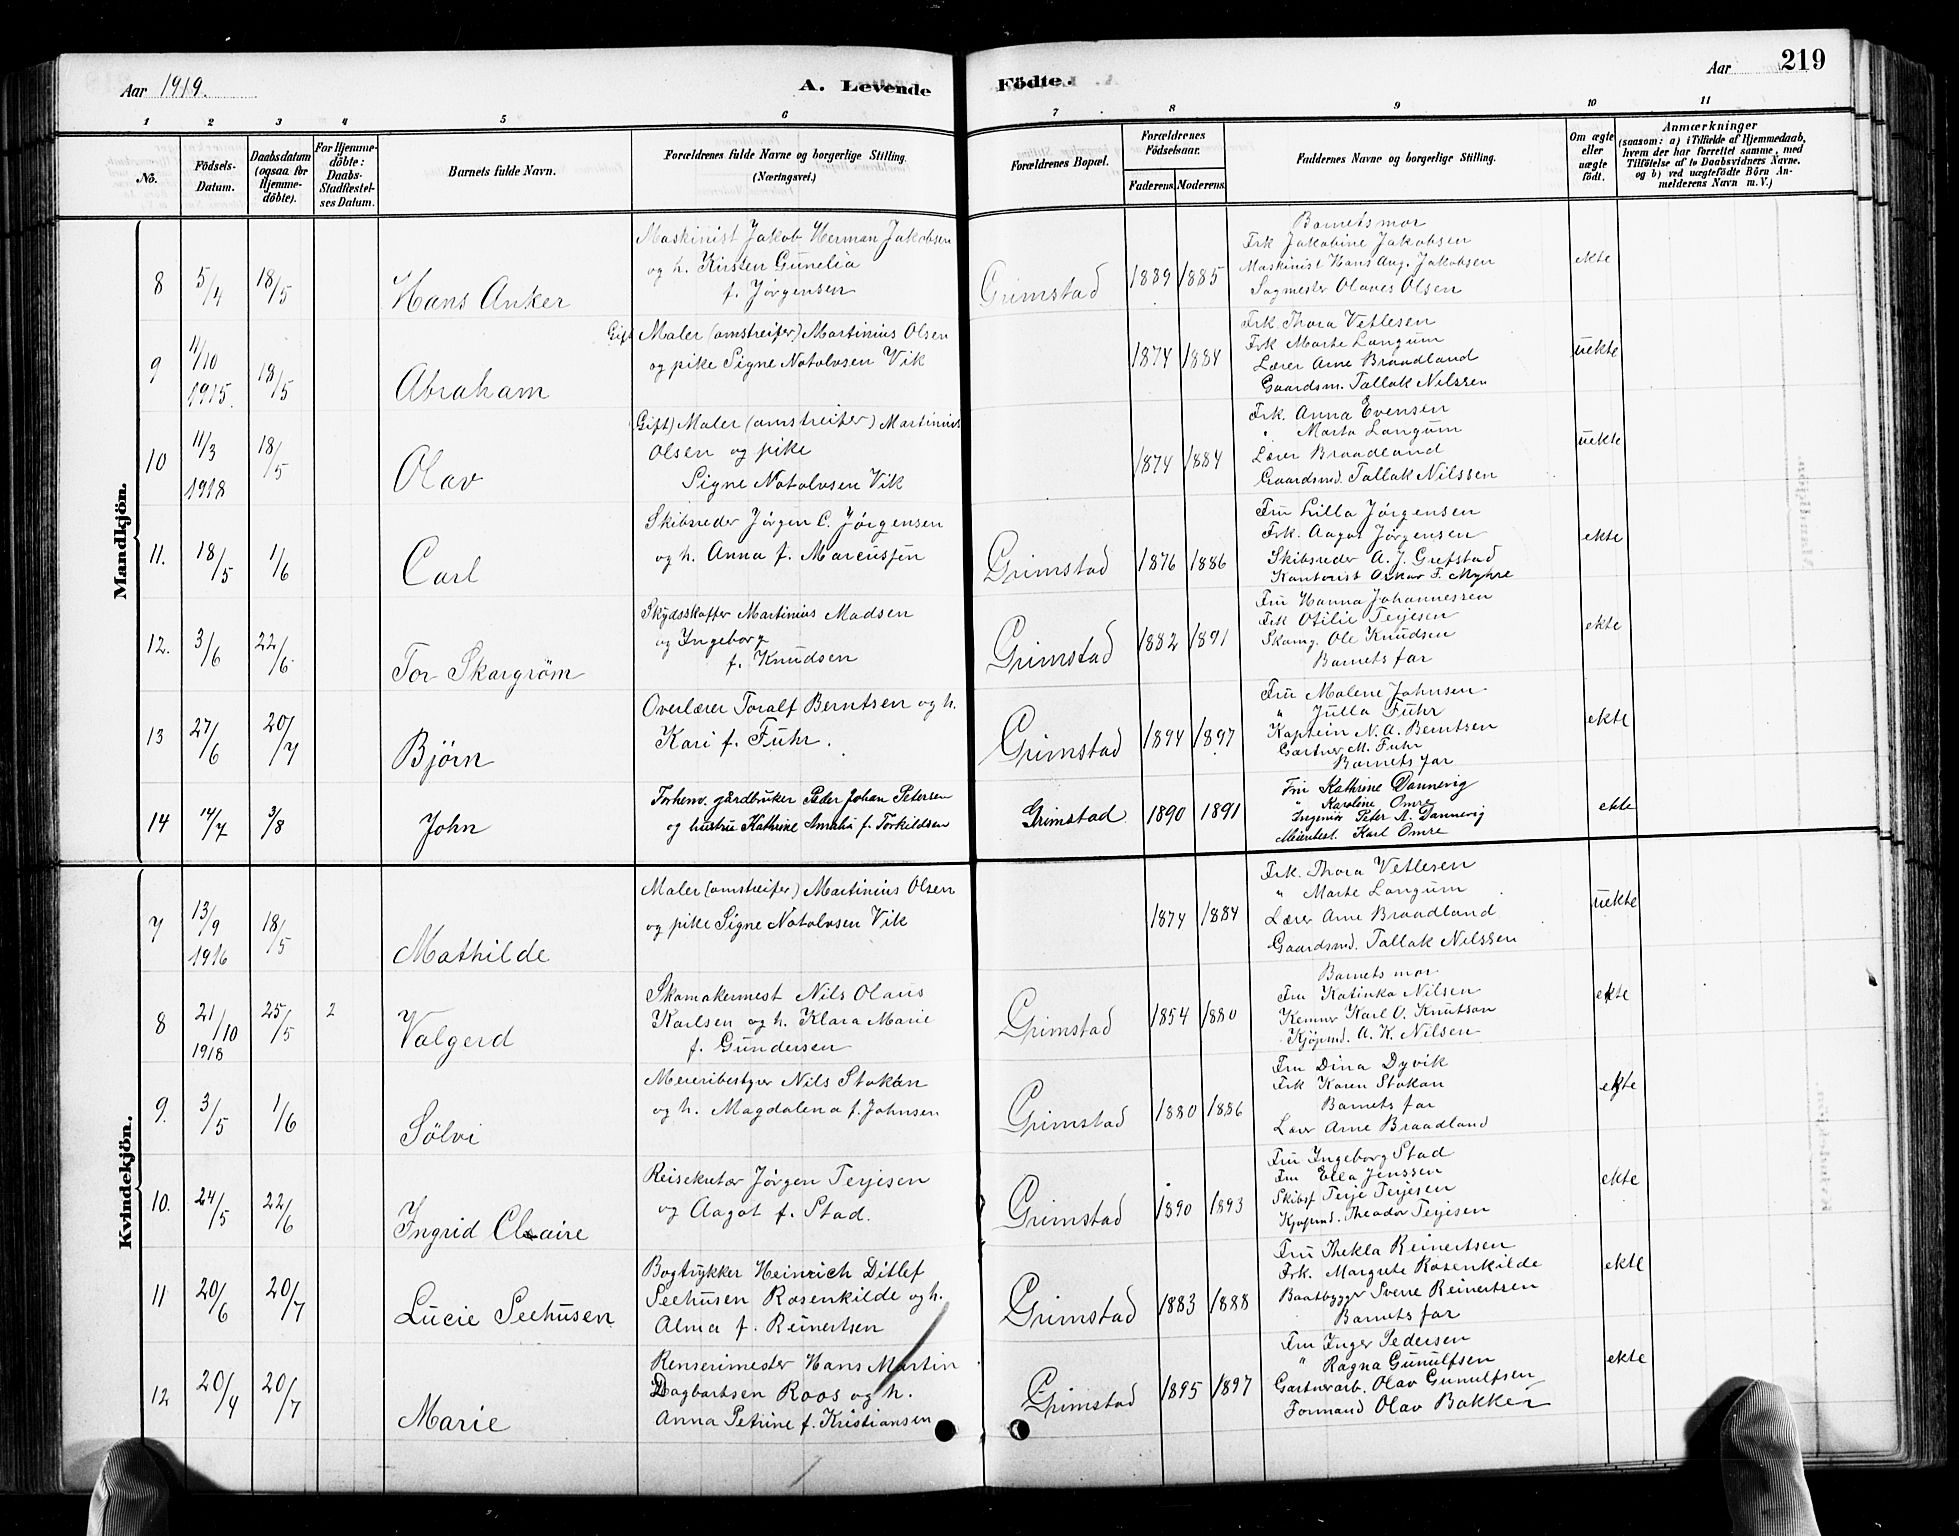 219
Aar 1919.
A. Levende
Födte.
Aar
1 2 3 4 5 6 7 8 9 10 11
No.
Födsels-Datum.
Daabsdatum (ogsaa for Hjemme-döbte).
For Hjemme-döbte: Daabs-Stadfæstel-ses Datum.
Barnets fulde Navn.
Forældrenes fulde Navne og borgerlige Stilling.
(Næringsvei.)
Forældrenes Bopæl.
Forældrenes Födselsaar.
Faderens. Moderens.
Faddernes Navne og borgerlige Stilling.
Om ægte eller uægte födt.
Anmærkninger
(saasom: a) i Tilfælde af Hjemmedaab, hvem der har forrettet samme, med Tilföielse af to Daabsvidners Navne, og b) ved uægtefödte Börn An-melderens Navn m. V.)
Mandkjön.
8 5/4 18/5 Hans Anker
Maskinist Jakob Herman Jakobsen
og h. Kirsten Gunelia
f. Jørgensen
Grimstad 1889 1885
Barnets mor
Frk Jakobine Jakobsen
Maskinist Hans Aug. Jakobsen
Sagmester Olaves Olsen
ekte
9 11/10 1915. 18/5 Abraham
Gift Maler (omstreifer) Martinius Olsen
og pike Signe Notolvsen Vik
1874 1884
Frk. Thora Vetlesen
Frk Marte Langum
Lærer Arne Braadland
Gaardsm. Tallak Nilssen
uekte
10 11/3 1918 18/5 Olav
(Gift) Maler (omstreifer) Martinius
Olsen og pike
Signe Notolvsen Vik
1874 1884
Frk. Anna Evensen
" Marta Langum
Lærer Braadland
Gaardsmd. Tallak Nilssen
uekte
11. 18/5 1/6 Carl
Skibsreder Jørgen C. Jørgensen
og h. Anna f. Marcussen
Grimstad 1876 1886
Fru Lilla Jørgensen
Frk. Aagot Jørgensen
Skibsreder A. J. Grefstad
Kontorist Oskar F. Myhre
ekte
12. 3/6 22/6 Tor Skargrøm
Skydsskaffer Martinius Madsen
og Ingeborg
f. Knudsen
Grimstad 1882 1891
Fru Hanna Johannessen
Frk Otilie Terjesen
Skomg. Ole Knudsen
Barnets far
ekte
13 27/6 20/7 Bjørn
Overlærer Toralf Berntsen og h.
Kari f. Fuhr.
Grimstad 1894 1897
Fru Malene Johnsen
" Julla Fuhr
Kaptein N. A. Berntsen
Gartner M. Fuhr
Barnets far
ekte
14 14/7 3/8 John
Forhenv. gårdbruker Peder Johan Petersen
og hustru Kathrine Amalie f. Torkildsen
Grimstad 1890 1891
Fru Kathrine Dannevig
" Karoline Omre
Ingeniør Peter A. Dannevig
Karl Omre
ekte
Kvindekjön.
7 13/9 1916 18/5 Mathilde
Maler (omstreifer) Martinius Olsen
og pike Signe Notolvsen Vik
1874 1884
Frk. Thora Vetlesen
" Marte Langum
Lærer Arne Braadland
Gaardsmd. Tallak Nilssen
uekte
8 21/10 1918 25/5 2 Valgerd
Skomakermest Nils Olaus
Karlsen og h. Klara Marie
f. Gundersen
Grimstad 1854 1880
Barnets mor
Fru Katinka Nilsen
Kemner Karl O. Knutson
Kjøpmd. A. K. Nilsen
ekte
9. 3/5 1/6 Sölvi
Meieribestyrer Nils Stokan
og h. Magdalena f. Johnsen
Grimstad 1880 1886
Fru Dina Dyvik
Frk Karen Stokan
Barnets far
Lærer Arne Braadland
ekte
10. 24/5 22/6 Ingrid Claire
Reisekutør Jørgen Terjesen
og Aagot f. Stad.
Grimstad 1890 1893
Fru Ingeborg Stad
Fru Ella Jenssen
Skibsf Terje Terjesen
Kjøpmd. Theodor Terjesen
ekte
11 20/6 20/7 Lucie Seehusen
Bogtrykker Heinrich Ditlef
Seehusen Rosenkilde og h.
Alma f. Reinertsen
Grimstad 1883 1888
Fru Thekla Reinertsen
Frk. Margrete Rosenkilde
Baatbygger Svene Reinertsen
Barnets far
ekte
12 20/4 20/7 Marie
Renserimester Hans Martin
Dagbartsen Roos og h.
Anna Petrine f. Kristiansen
Grimstad 1895 1897
Fru Inger Pedersen
" Ragna Gunulfsen
Gartnerarb. Olav Gunulfsen
Formand Olav Bakker
ekte